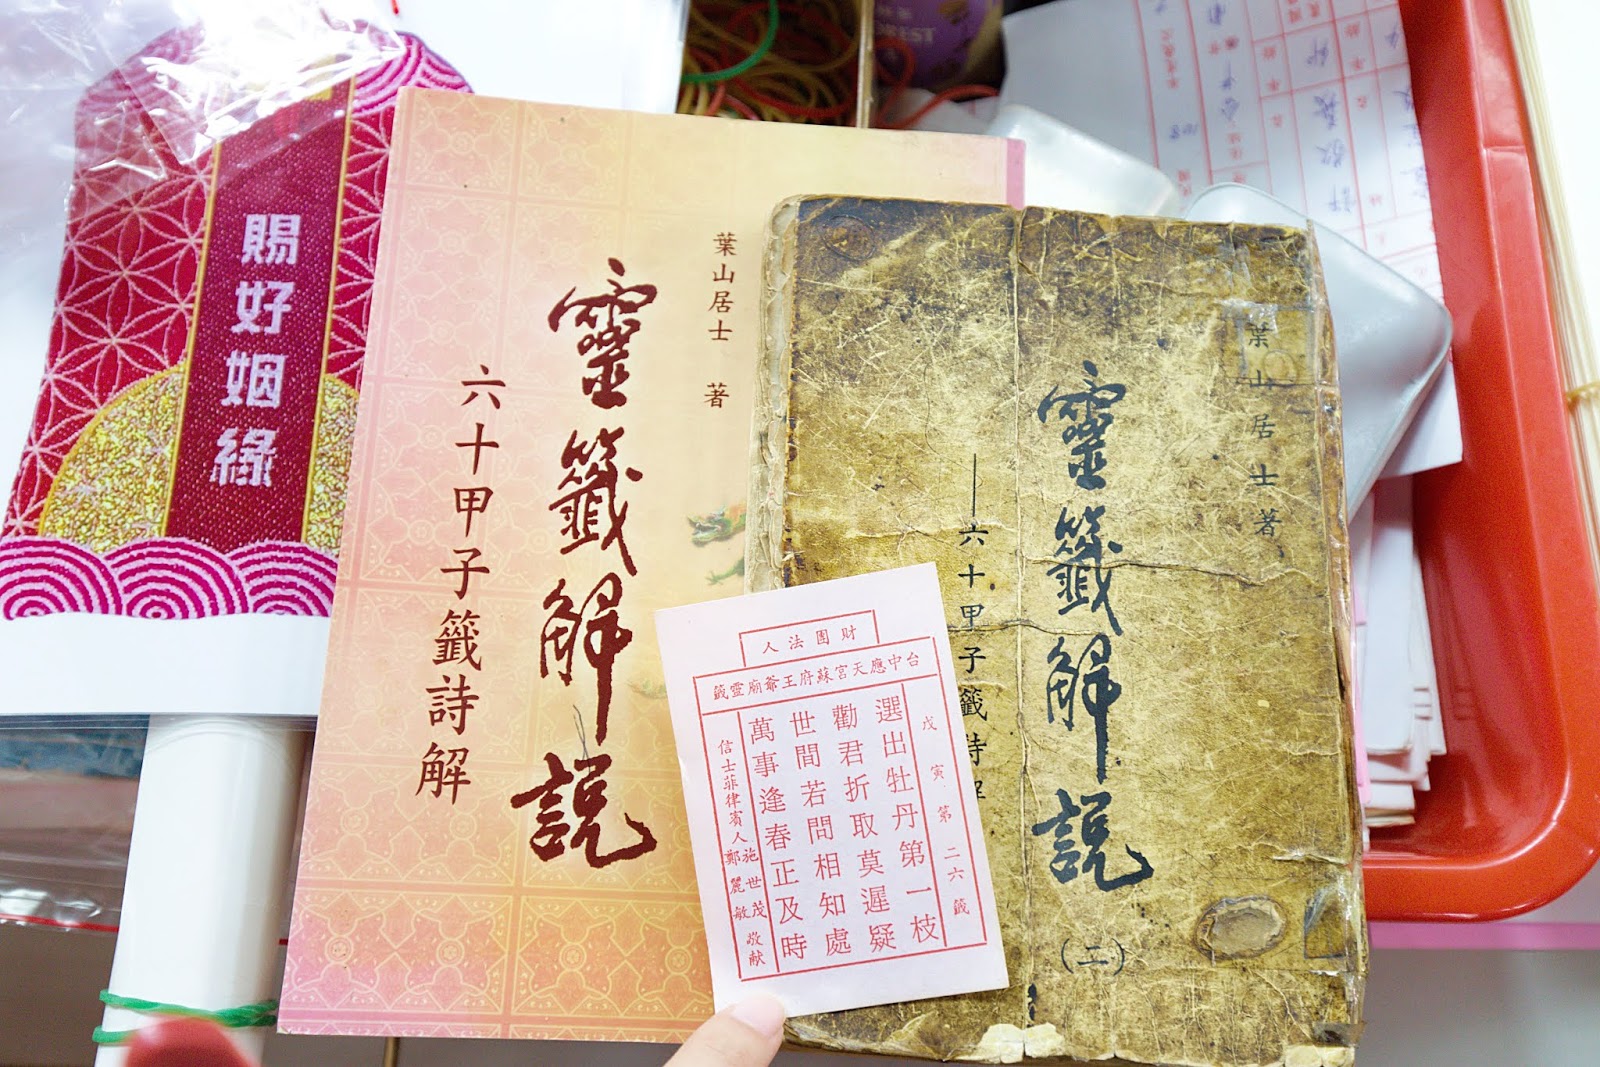 賜好姻緣
葉山居士 著
靈籤解說
六十甲子籤詩解
葉山居士著
靈籤解說
(二)
——六十甲子籤詩解
財團法人
台中應天宮蘇府王爺廟靈籤
戊寅 第二六籤
選出牡丹第一枝
勸君折取莫遲疑
世間若問相知處
萬事逢春正及時
信士菲律賓人施世茂鄭麗敏敬献